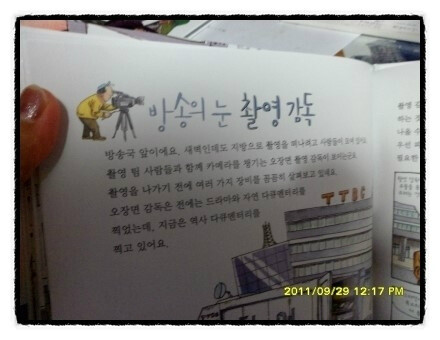 방송의 눈 촬영 감독
방송국 앞이에요. 새벽인데도 지방으로 촬영을 떠나려고 사람들이 모여 있어요.
촬영 팀 사람들과 함께 카메라를 챙기는 오장면 촬영 감독이 보이는군요.
촬영을 나가기 전에 여러 가지 장비를 꼼꼼히 살펴보고 있네요.
오장면 감독은 전에는 드라마와 자연 다큐멘터리를
찍었는데, 지금은 역사 다큐멘터리를
찍고 있어요.
TTBC
촬영
하는 것
나올 수
우선
필요한
2011/09/29 12:17 PM